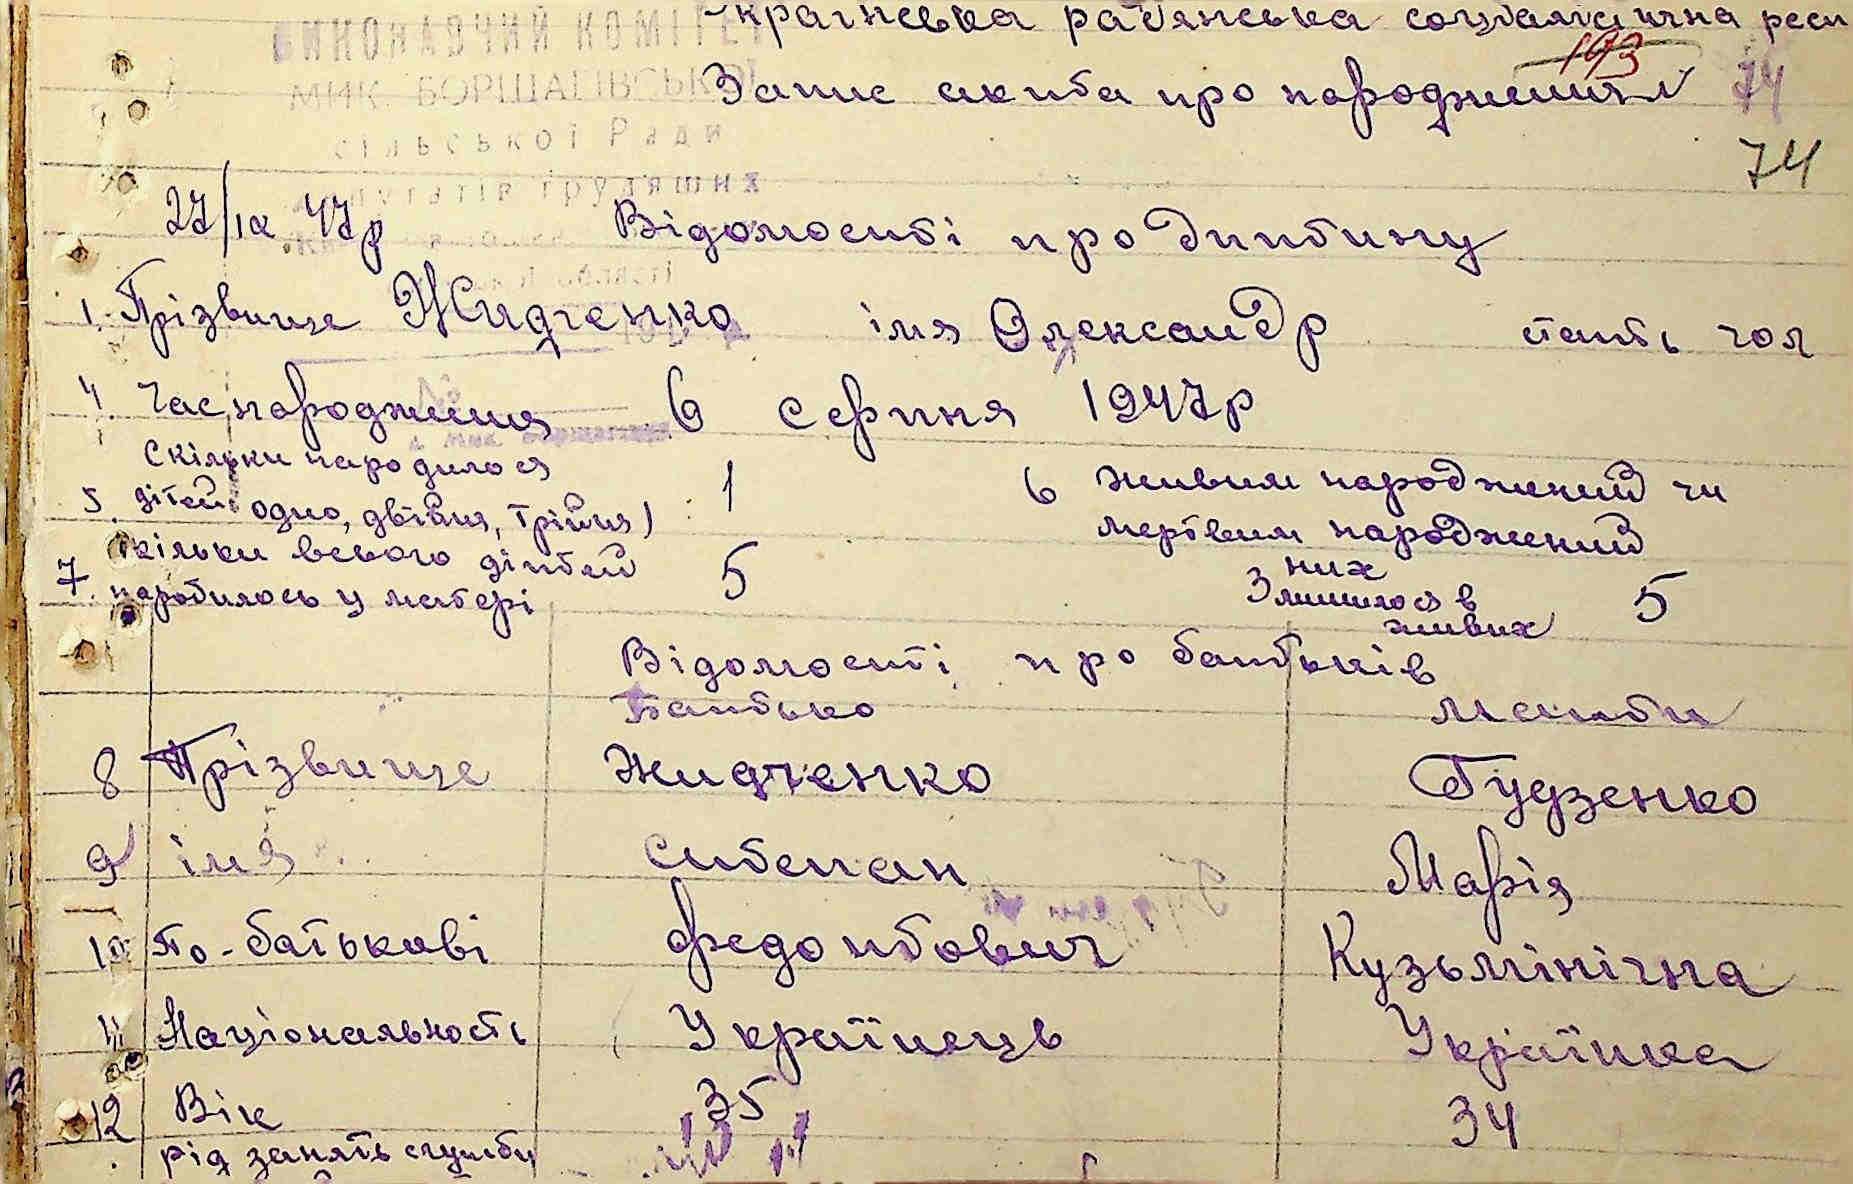 Українська радянська соціалістична респ
ВИКОНАВЧИЙ КОМІТЕТ
193
МИК. БОРЩАГІВСЬКОЇ
Запис акта про народження
74
сільської Ради
74
депутатів трудящих
27/IX 47р Відомості про дитину
області
1. Прізвище Жидченко імя Олександр стать чол
4. Час народження 6 серпня 1947р
5. Скільки народилося
дітей одно, двійня, трійня) 1 6 живим народжений чи
мертвим народжений
7. скільки всього дітей
народилось у матері 5 З них
лишилося в
живих 5
Відомості про батьків
Батько мати
8 Прізвище Жидченко Гудзенко
9 імя Степан Марія
10 По-батькові Федотович Кузьмінічна
11 Національность Українець Українка
12 Вік 35 34
рід занять служби